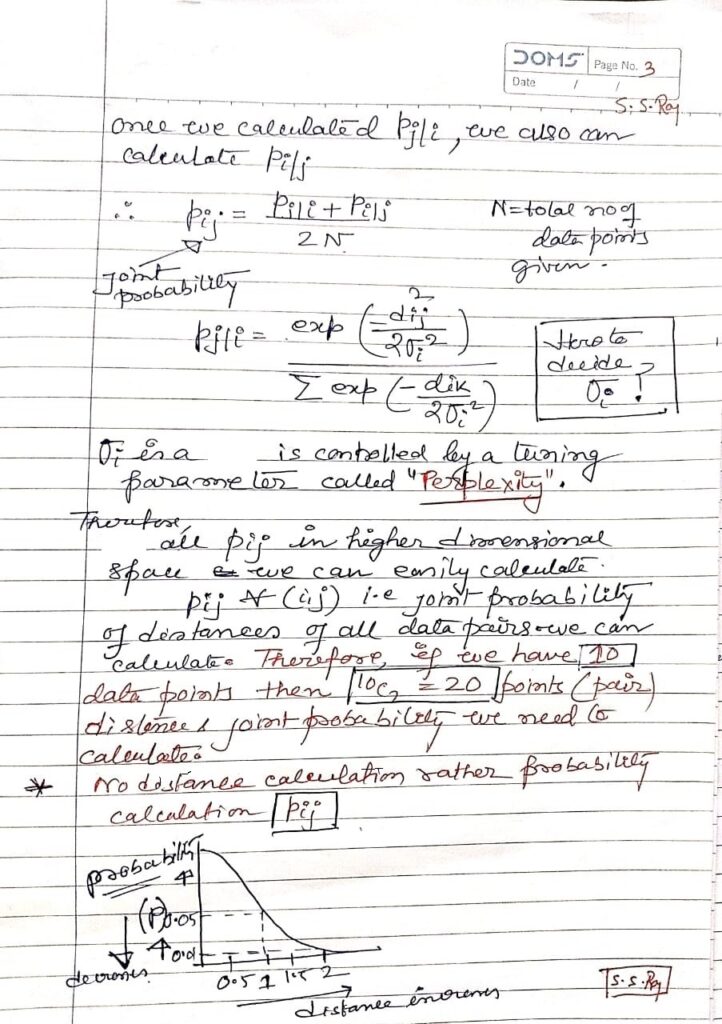 DOMS
Page No. 3
Date / /
S. S. Ray
Once we calculated Pj|i, we also can
calculate Pi|j
∴ pij = Pj|i + Pi|j / 2N
N = total no of
data points
given.
Joint
probability
Pj|i = exp (-dij² / 2σi²) / Σ exp (-dik / 2σi²)
How to
decide
σi ?!
σi is a is controlled by a tuning
parameter called "Perplexity".
Therefore,
all pij in higher dimensional
space we can easily calculate.
pij ∀ (i,j) i.e joint probability
of distances of all data pairs we can
calculate. Therefore, if we have 10
data points then 10c2 = 20 points (pair)
distance & joint probability we need to
calculate.
* No distance calculation rather probability
calculation pij
probability
(P) 0.05
0.01
decreases
0.5 1 1.5 2
distance increases
S. S. Ray